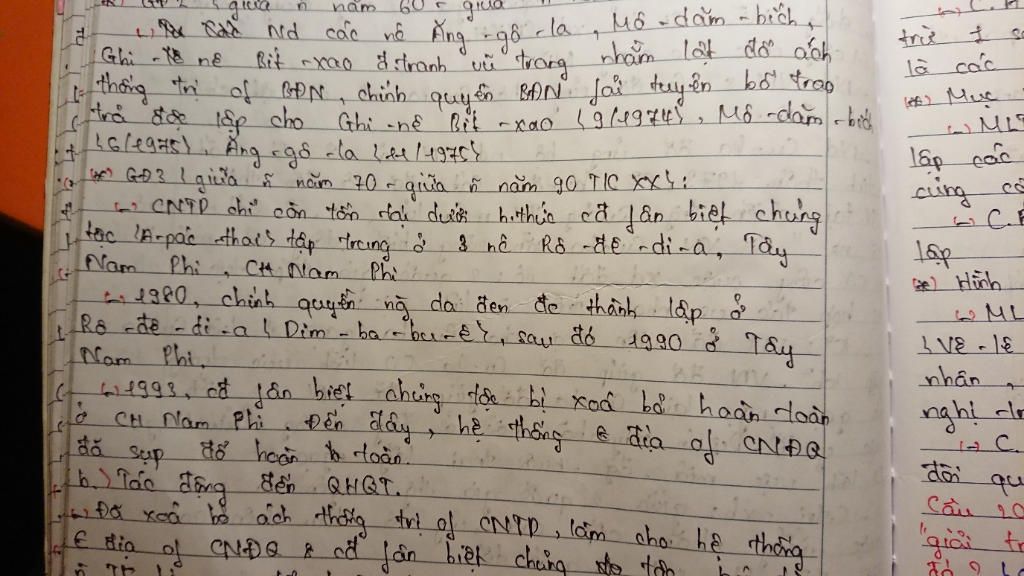 (*) GĐ2 { giữa ñ năm 60 - giữa ñ
Nd các nc Ăng-gô-la, Mô-dăm-bích,
Ghi-nê Bít-xao đ.tranh vũ trang nhằm lật đổ ách
thống trị of BĐN, chính quyền BĐN fải tuyên bố trao
trả độc lập cho Ghi-nê Bít-xao {9/1974}, Mô-dăm-bích
{6/1975}, Ăng-gô-la {11/1975}
(*) GĐ3 { giữa ñ năm 70 - giữa ñ năm 90 T/C XX}:
CNTD chỉ còn tồn tại dưới h.thức cđ fân biệt chủng
tộc {A-pác-thai} tập trung ở 3 nc Rô-đê-di-a, Tây
Nam Phi, CH Nam Phi
1980, chính quyền ng̃ da đen đc thành lập ở
Rô-đê-di-a { Dim-ba-bu-ê}, sau đó 1990 ở Tây
Nam Phi.
1993, cđ fân biệt chủng tộc bị xoá bỏ hoàn toàn
ở CH Nam Phi. Đến đây, hệ thống € địa of CNĐQ
đã sụp đổ hoàn toàn.
b.) Tác động đến QHQT.
Đã xoá bỏ ách thống trị of CNTD, làm cho hệ thống
€ địa of CNĐQ & cđ fân biệt chủng tộc
trừ 1 số
là các
(*) Mục
MLT
lập các
cũng cô
lập
(*) Hình
ML
{ Vê-lê
nhân,
nghị-tr
C.
đối qu
Câu 20
"giải tr